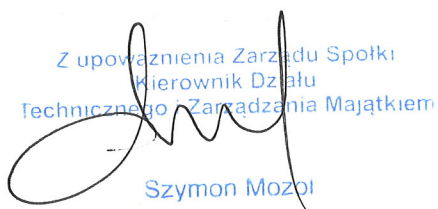 Z upoważnienia Zarządu Spółki
Kierownik Działu
Technicznego i Zarządzania Majątkiem
Szymon Mozol